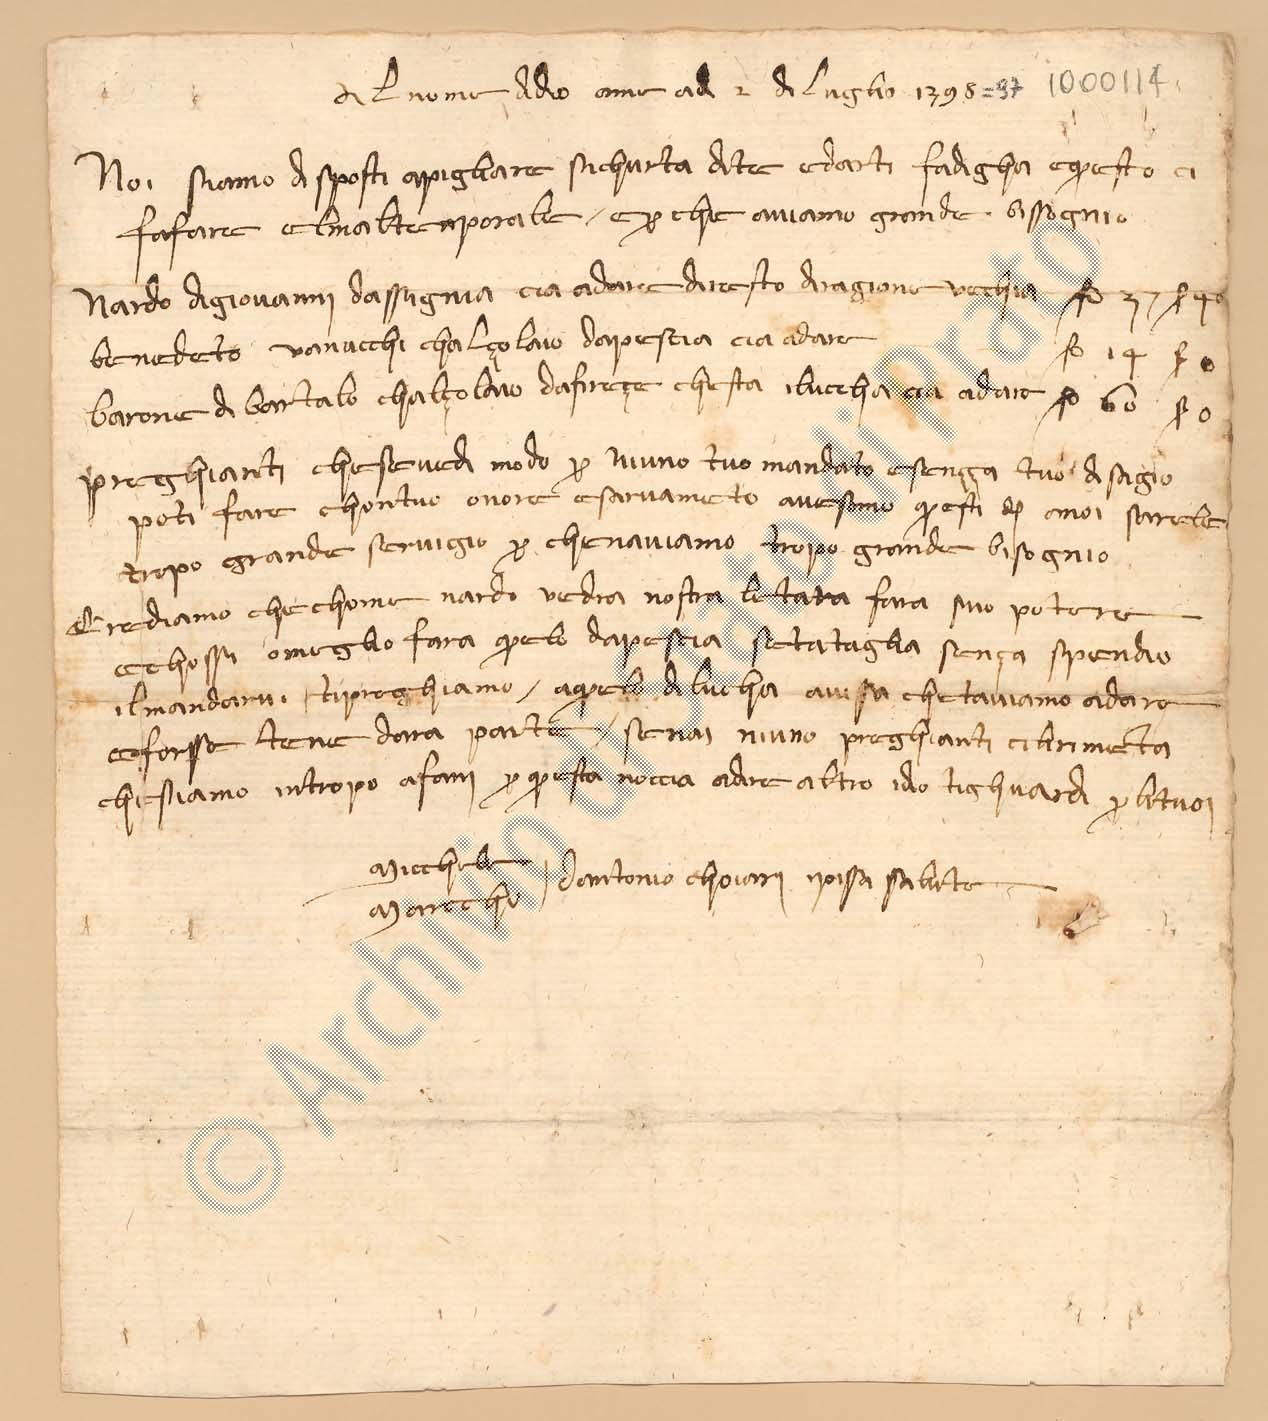 Al nome didio ame adi 2 di luglio 1398 = 97 1000114
Noi siamo disposti apigliare sichurta dite edarti fadigha equesto ci
fafare elmaltenporale / e per che aviamo grande bissognio
Nardo digiovanni dassignia cia adare diresto diragione vecchia fo 37 s 40
benedeto vanucchi chalçolaio dapescia cia adare fo 14 s 0
barone di bartalo chalçolaio dafireçe chesta iluccha cia adare fo 60 s 0
preghianti chesevedi modo per niuno tuo mandato esença tuo disagio
poti fare chontuo onore esarvameto avesimo questi anoi sarebe
tropo grande servigio per chenaviamo tropo grande bisognio
Crediamo chechome nardo vedra nostra letara fara suo potere
echossi omeglio fara quelo dapescia setataglia sença spendio
ilmandarvi tipreghiamo / aquelo di lucha avisa chetaviamo adare
eforsse tene dara parte / senai niuno preghianti cilrimetta
chesiamo intropo afani per questa noccia adire altro idio tighuardi per letuoi
Micchele
Marccho dantonio choiari inpissa salute
© Archivio di Stato di Prato